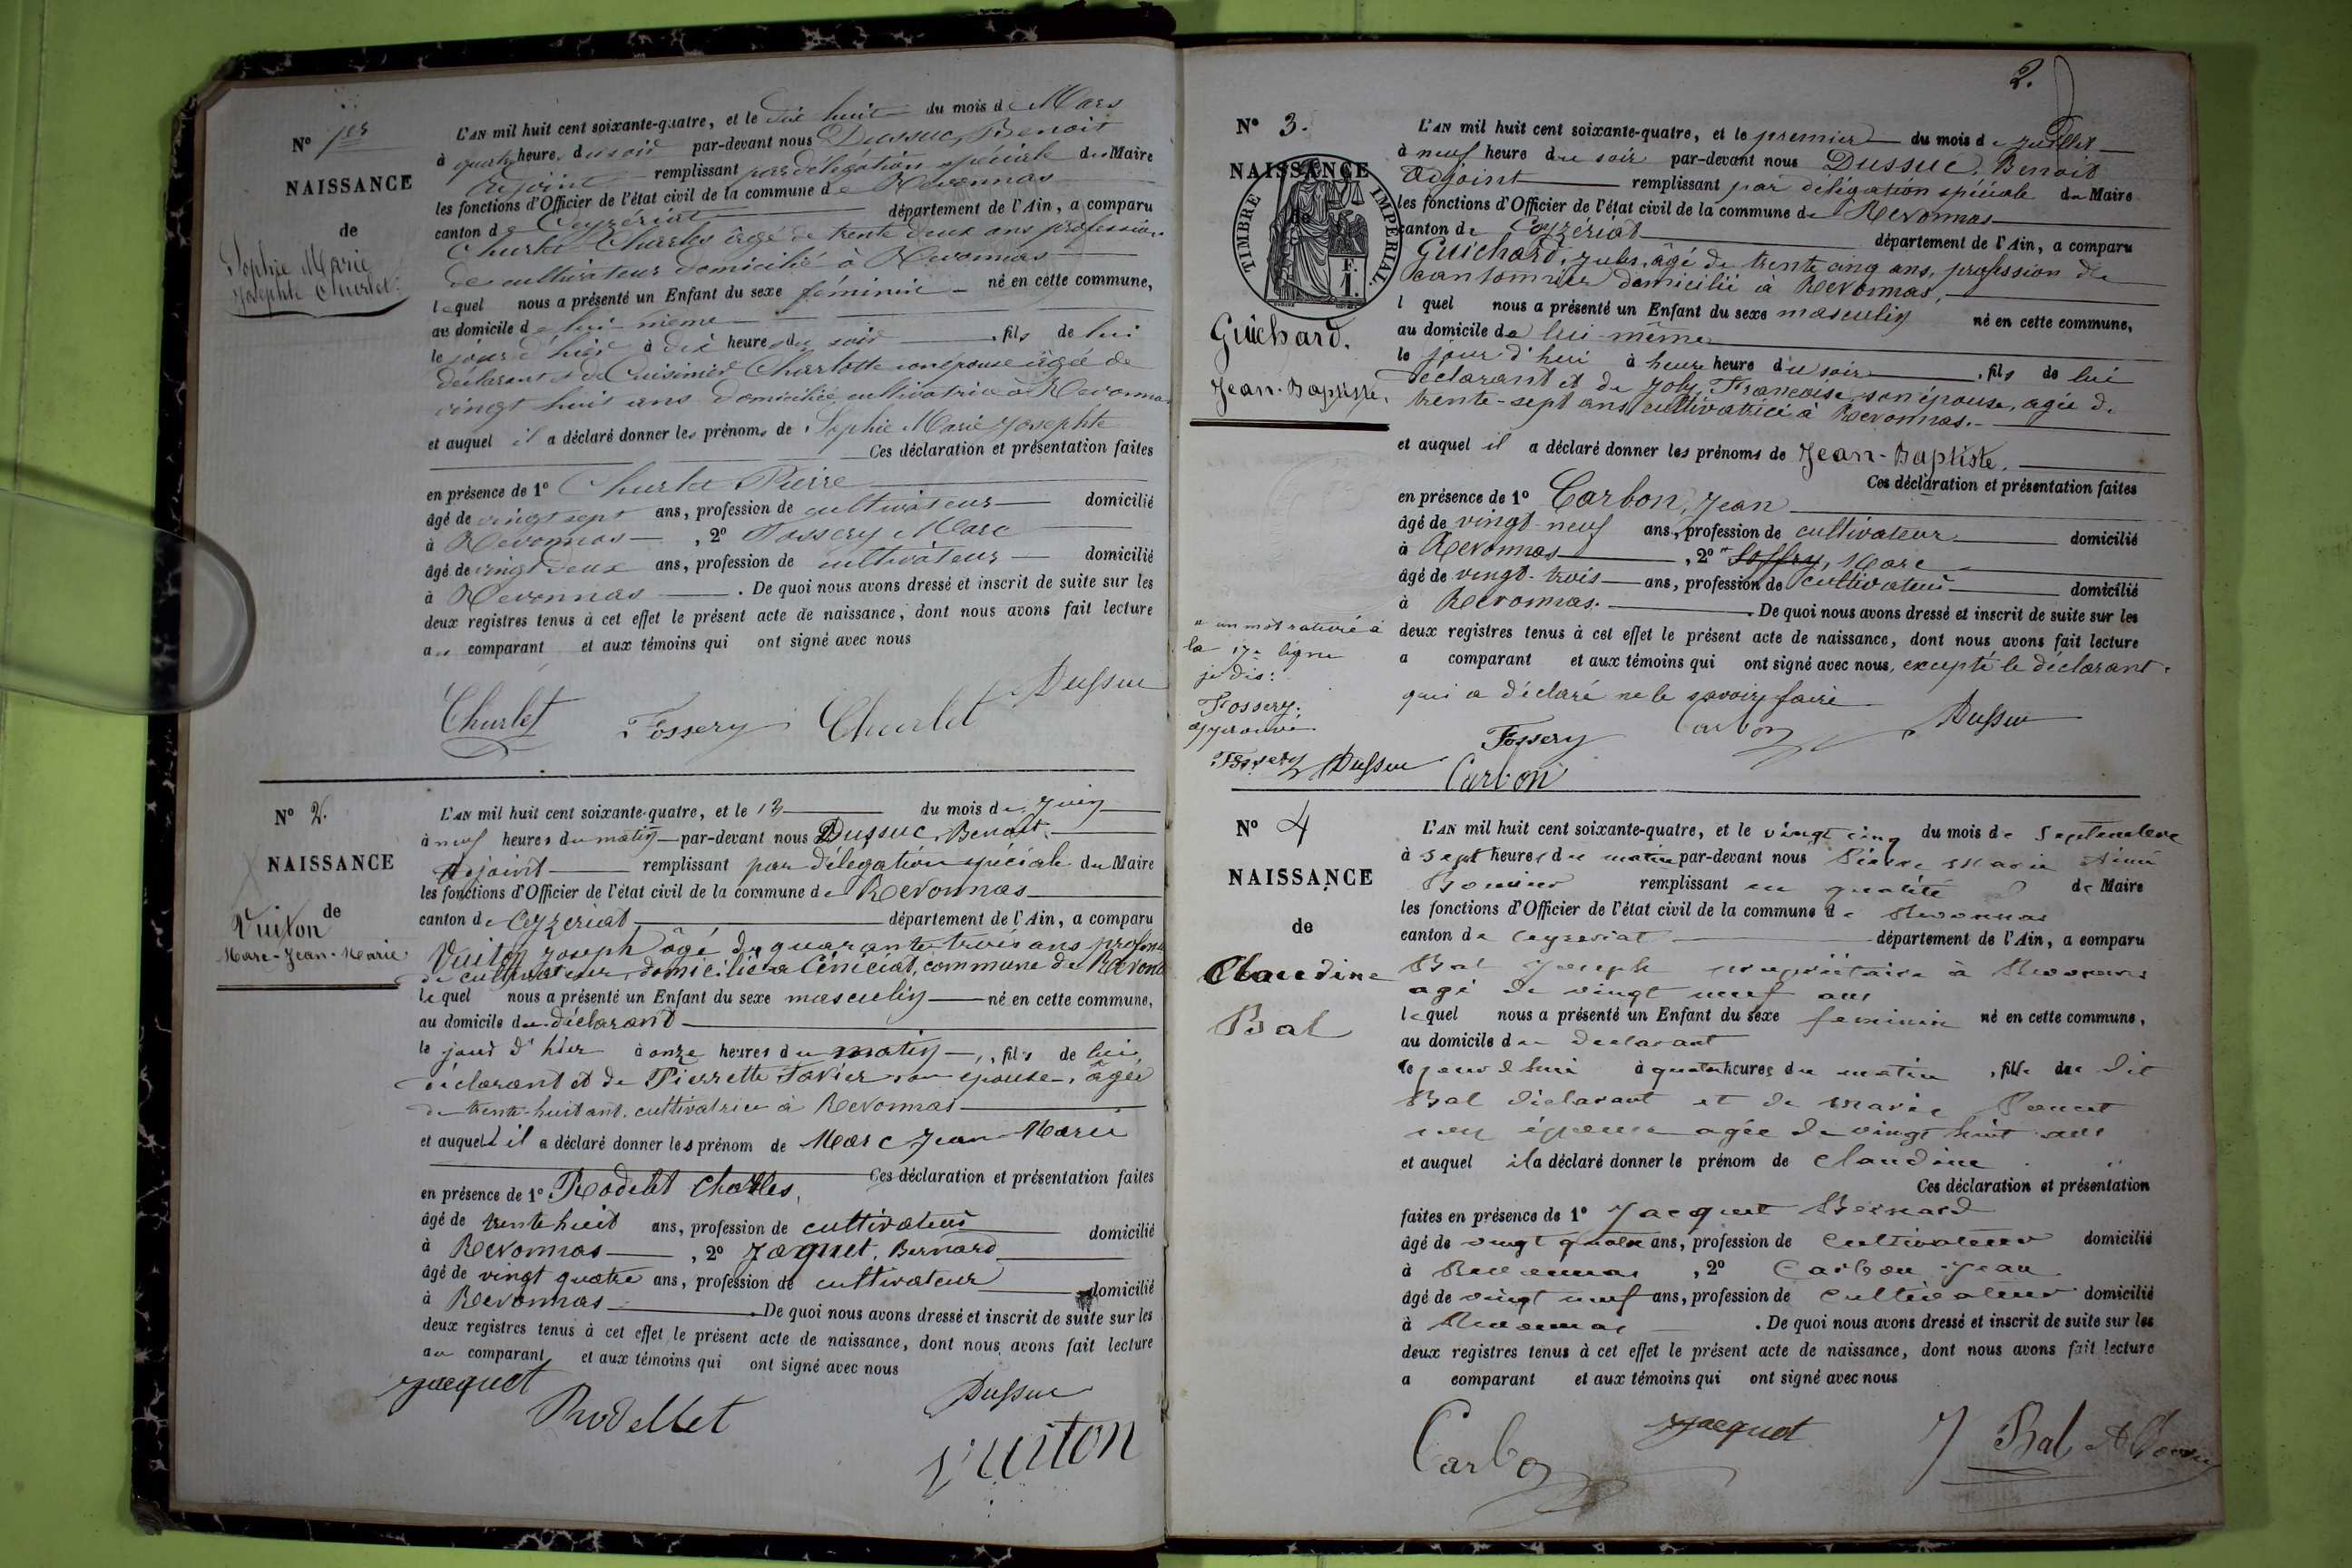 N° 1er
NAISSANCE
de
Sophie Marie
Josephte Churlet
L'AN mil huit cent soixante-quatre, et le dix huit du mois de Mars
à quatre heures du soir par-devant nous Dussuc, Benoit
adjoint remplissant par délégation spéciale du Maire
les fonctions d'Officier de l'état civil de la commune de Revonnas
canton de Ceyzériat département de l'Ain, a comparu
Churlet Charles âgé de trente deux ans profession
de cultivateur domicilié à Revonnas
lequel nous a présenté un Enfant du sexe féminin né en cette commune,
au domicile de lui-même
le jour d'hier à dix heures du soir , fils de lui
déclarant et de Cuisinier Charlotte son épouse âgée de
vingt huit ans domiciliée cultivatrice à Revonnas
et auquel il a déclaré donner les prénoms de Sophie Marie Josephte
Ces déclaration et présentation faites
en présence de 1° Churlet Pierre
âgé de vingt sept ans, profession de cultivateur domicilié
à Revonnas , 2° Fossery Marc
âgé de vingt deux ans, profession de cultivateur domicilié
à Revonnas . De quoi nous avons dressé et inscrit de suite sur les
deux registres tenus à cet effet le présent acte de naissance, dont nous avons fait lecture
au comparant et aux témoins qui ont signé avec nous
Churlet Fossery Churlet Dussuc
N° 2.
NAISSANCE
de
Vuiton
Marc-Jean-Marie
L'AN mil huit cent soixante-quatre, et le 13 du mois de Juin
à neuf heures du matin par-devant nous Dussuc, Benoit
Adjoint remplissant par délégation spéciale du Maire
les fonctions d'Officier de l'état civil de la commune de Revonnas
canton de Ceyzeriat département de l'Ain, a comparu
Vuiton Joseph âgé de quarante-trois ans
de cultivateur domicilié à Céniciat, commune de
lequel nous a présenté un Enfant du sexe masculin né en cette commune,
au domicile du déclarant
le jour d'hier à onze heures du matin , fils de lui
déclarant et de Pierrette Tavier son épouse, âgée
de trente-huit ans. cultivatrice à Revonnas
et auquel il a déclaré donner les prénom de Marc Jean Marie
Ces déclaration et présentation faites
en présence de 1° Rodelet Charles,
âgé de trente huit ans, profession de cultivateur domicilié
à Revonnas , 2° Jaquet, Bernard
âgé de vingt quatre ans, profession de cultivateur domicilié
à Revonnas . De quoi nous avons dressé et inscrit de suite sur les
deux registres tenus à cet effet le présent acte de naissance, dont nous avons fait lecture
au comparant et aux témoins qui ont signé avec nous
Jacquet Rodellet Dussuc
Vuiton
2.
N° 3.
NAISSANCE
de
TIMBRE IMPÉRIAL.
F.
1.
Guichard.
Jean-Baptiste.
L'AN mil huit cent soixante-quatre, et le premier du mois de Juillet
à neuf heure du soir par-devant nous Dussuc, Benoit
Adjoint remplissant par délégation spéciale du Maire
les fonctions d'Officier de l'état civil de la commune de Revonnas
canton de Ceyzériat département de l'Ain, a comparu
Guichard, Jules, âgé de trente cinq ans, profession de
cantonnier domicilié à Revonnas,
l quel nous a présenté un Enfant du sexe masculin né en cette commune,
au domicile de lui-même
le jour d'hui à heure heure du soir , fils de lui
déclarant et de Joly, Françoise son épouse, agée de
trente-sept ans cultivatrice à Revonnas.
et auquel il a déclaré donner les prénoms de Jean-Baptiste.
Ces déclaration et présentation faites
en présence de 1° Carbon, Jean
âgé de vingt-neuf ans, profession de cultivateur domicilié
à Revonnas , 2° Soffry, Marc
âgé de vingt-trois ans, profession de cultivateur domicilié
à Revonnas. . De quoi nous avons dressé et inscrit de suite sur les
deux registres tenus à cet effet le présent acte de naissance, dont nous avons fait lecture
a comparant et aux témoins qui ont signé avec nous, excepté le déclarant
qui a déclaré ne le savoir faire
un mot raturé à
la 17e ligne
je dis:
Fossery.
approuvé
Fossery Dussuc
Fossery Carbon Dussuc
Carbon
N° 4
NAISSANCE
de
Claudine
Bal
L'AN mil huit cent soixante-quatre, et le vingt cinq du mois de Septembre
à sept heures du matin par-devant nous Pierre Marie Aimé
remplissant en qualité de Maire
les fonctions d'Officier de l'état civil de la commune de Revonnas
canton de Ceyzeriat département de l'Ain, a comparu
Bal Joseph propriétaire à Revonnas
agé de vingt neuf ans
lequel nous a présenté un Enfant du sexe feminin né en cette commune,
au domicile du declarant
le jourdhui à quatre heures du matin , fille du dit
Bal déclarant et de Marie Poncet
son épouse agée de vingt huit ans
et auquel il a déclaré donner le prénom de Claudine
Ces déclaration et présentation
faites en présence de 1° Jacquet Bernard
âgé de vingt quatre ans, profession de Cultivateur domicilié
à Revonnas , 2° Carbon Jean
âgé de vingt neuf ans, profession de Cultivateur domicilié
à Revonnas . De quoi nous avons dressé et inscrit de suite sur les
deux registres tenus à cet effet le présent acte de naissance, dont nous avons fait lecture
a comparant et aux témoins qui ont signé avec nous
Carbon Jacquet J Bal